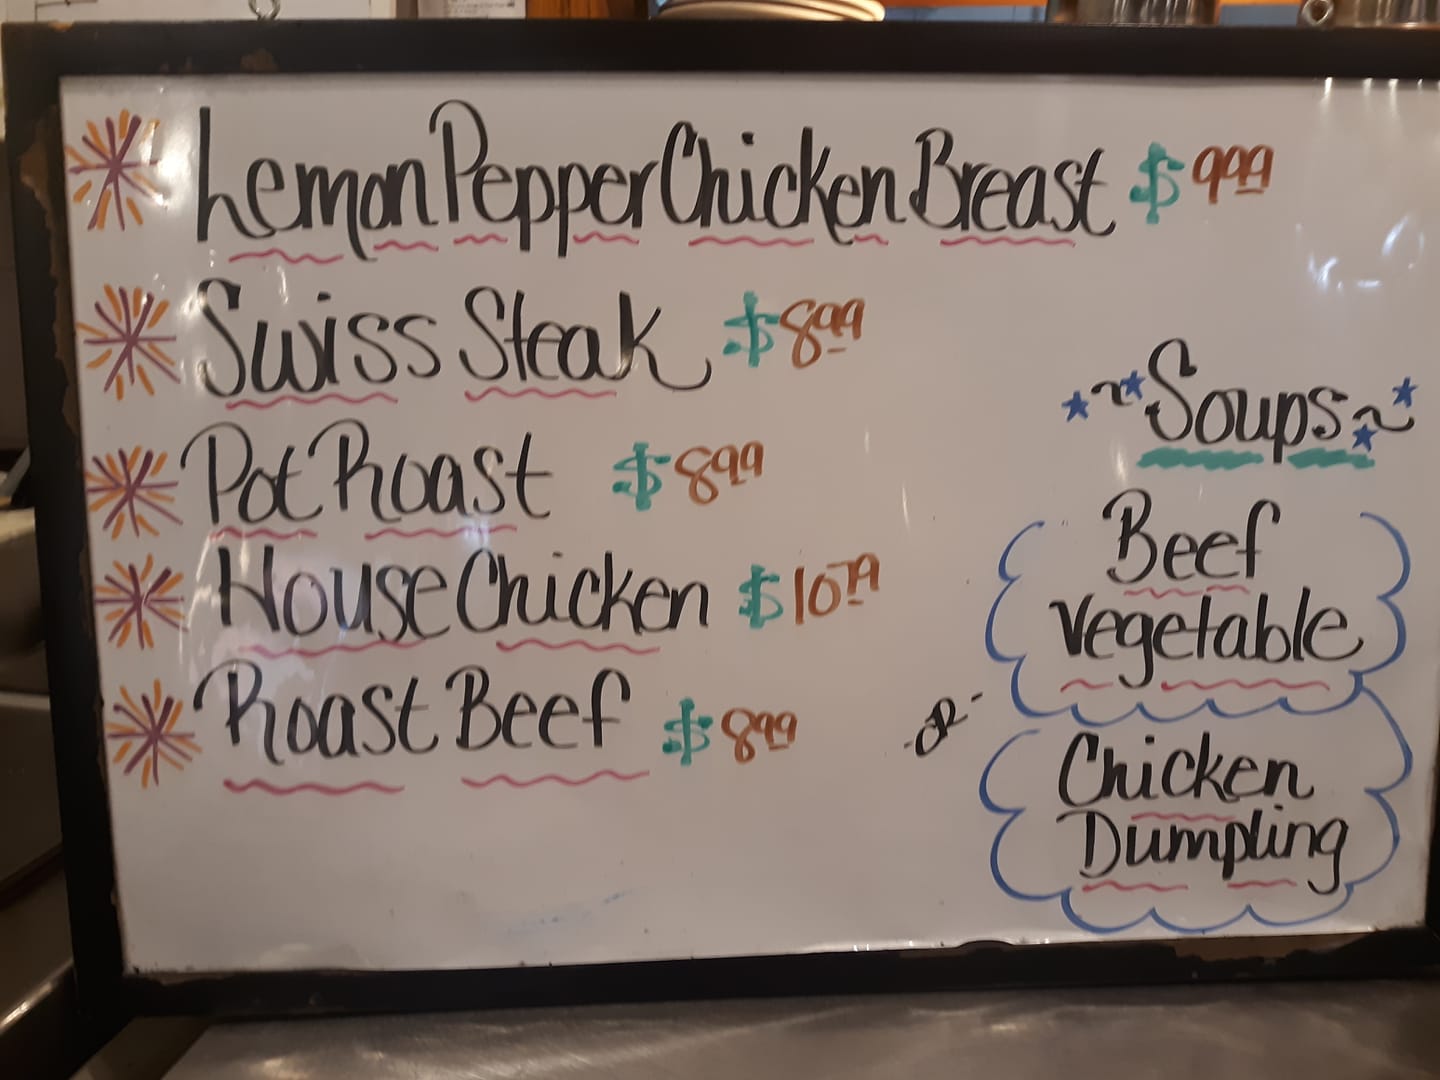 Lemon Pepper Chicken Breast $9.99
Swiss Steak $8.99
Pot Roast $8.99
House Chicken $10.79
Roast Beef $8.99
~Soups~
Beef
Vegetable
-OR-
Chicken
Dumpling